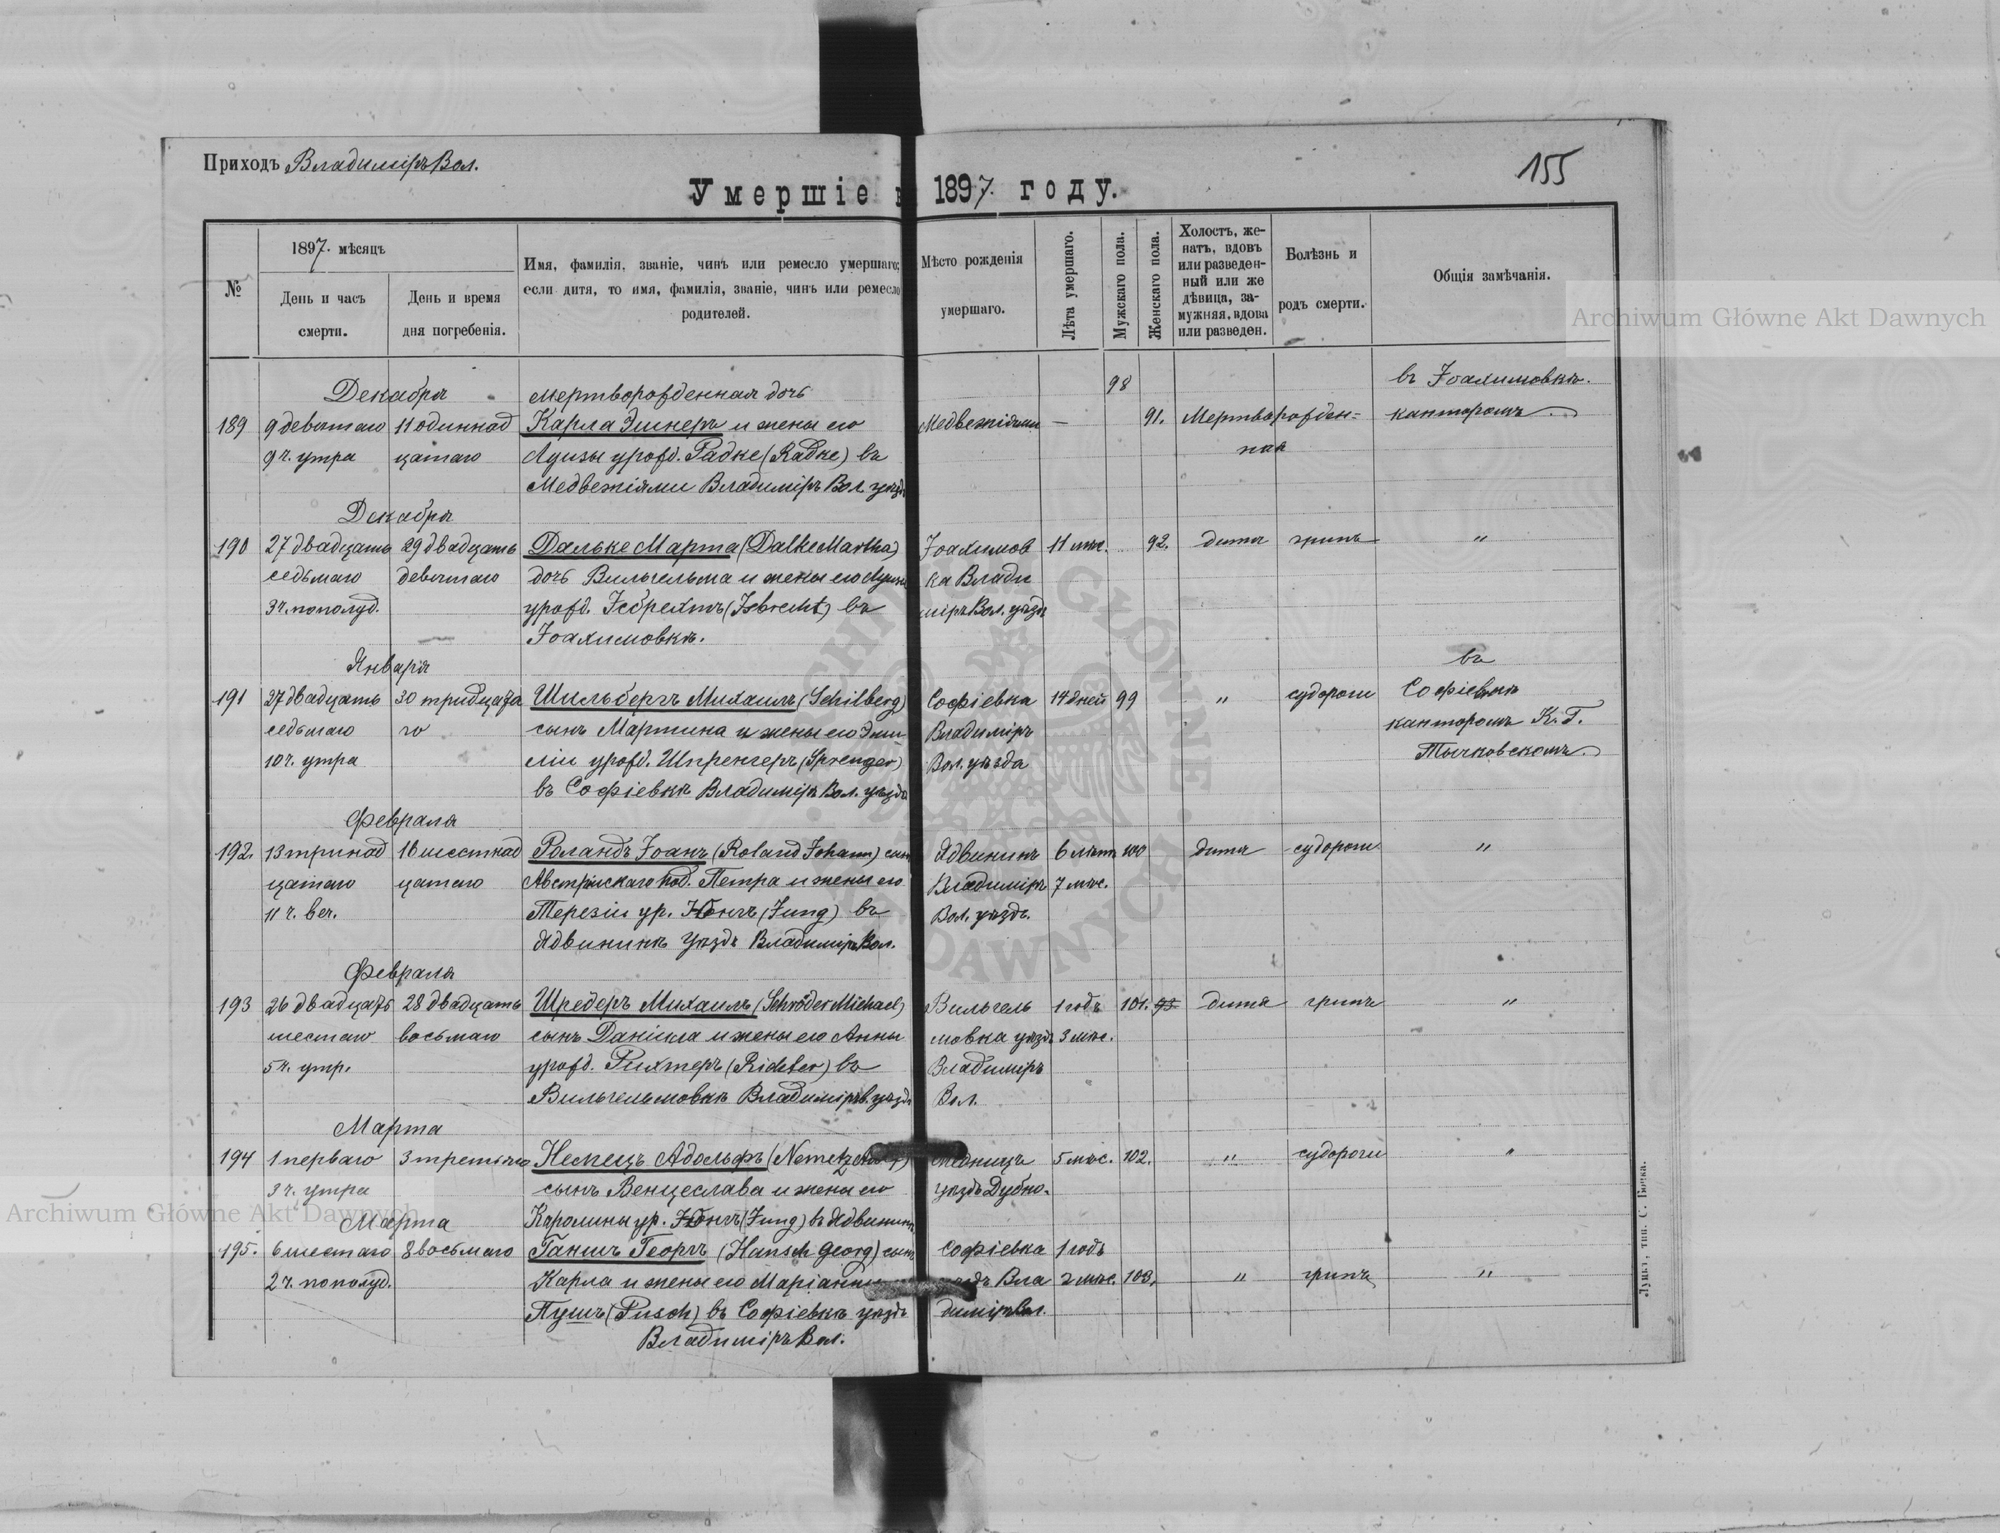 Приходъ ВладимiръВол.
155
Умершіе 1897. году.
№
1897. мѣсяцъ
День и часъ смерти.
День и время дня погребенія.
Имя, фамилія, званіе, чинъ или ремесло умершаго;
если дитя, то имя, фамилія, званіе, чинъ или ремесло
родителей.
Мѣсто рожденія
умершаго.
Лѣта умершаго.
Мужскаго пола.
Женскаго пола.
Холостъ, же-
натъ, вдовъ
или разведен-
ный или же
дѣвица, за-
мужняя, вдова
или разведен.
Болѣзнь и
родъ смерти.
Общія замѣчанія.
Декабря мертворожденная дочь 98 въ Іоахимовкѣ.
189 9 девятаго 11 одиннад Карла Эшнеръ и жены его — 91. Мертворожден= канторомъ.
9 ч. утра цатаго Луизы урожд. Радке (Radke) въ ная
Медвежіями Владиміръ Вол. уѣзд.
Декабря
190 27 двадцать 29 двадцать Дальке Марта (Dalke Martha) Іоахимов 11 мѣс. 92. дитя грипъ "
седьмаго девятаго дочь Вильгельма и жены его ка Влади
3 ч. пополуд. урожд. Ісбрехтъ (Isbrecht) въ міръ Вол. уѣзд
Іоахимовкѣ.
Января въ
191 27 двадцать 30 тридцата Шильбергъ Михаилъ (Schilberg) Софіевка 14 дней 99 " судороги Софіевкѣ
седьмаго го сынъ Мартина и жены его Эми- Владиміръ канторомъ К. Г.
10 ч. утра ліи урожд. Шпренгеръ (Sprenger) Вол. уѣзда Тычковскомъ.
въ Софіевкѣ Владимір Вол. уѣзда
Февраля
192. 13 тринад 16 шестнад Роландъ Іоанъ (Roland Johann) сын Ядвининъ 6 лѣтъ 100 дитя судороги "
цатаго цатаго Австрійскаго под. Петра и жены его Владиміръ 7 мѣс.
11 ч. веч. Терезіи ур. Юнгъ (Jung) въ Вол. уѣзд.
Ядвининѣ уѣзда Владиміръ Вол.
Февраля
193 26 двадцать 28 двадцать Шредеръ Михаилъ (Schröder Michael) Вильгель 1 годъ 101. 93 дитя грипъ "
шестаго восьмаго сынъ Даніила и жены его Анны мовка уѣзд 3 мѣс.
5 ч. утр. урожд. Рихтеръ (Richter) въ Владиміръ
Вильгельмовкѣ Владимірв. уѣзда Вол.
Марта
194 1 перваго 3 третьяго Немецъ Адольфъ (Nemetz 5 мѣс. 102. " судороги "
3 ч. утра сынъ Венцеслава и жены его уѣздъ Дубно.
Марта Каролины ур. Юнгъ (Jung) въ Ядвининѣ
195. 6 шестаго 8 восьмаго Ганшъ Георгъ (Hansch Georg) сын Софіевка 1 годъ
2 ч. пополуд. Карла и жены его Маріанны Вла 2 мѣс. 103. " грипъ "
Пушъ (Pusch) въ Софіевкѣ уѣздъ диміръВол.
Владиміръ Вол.
Луцкъ, тип. С. Бонка.
Archiwum Główne Akt Dawnych
Archiwum Główne Akt Dawnych